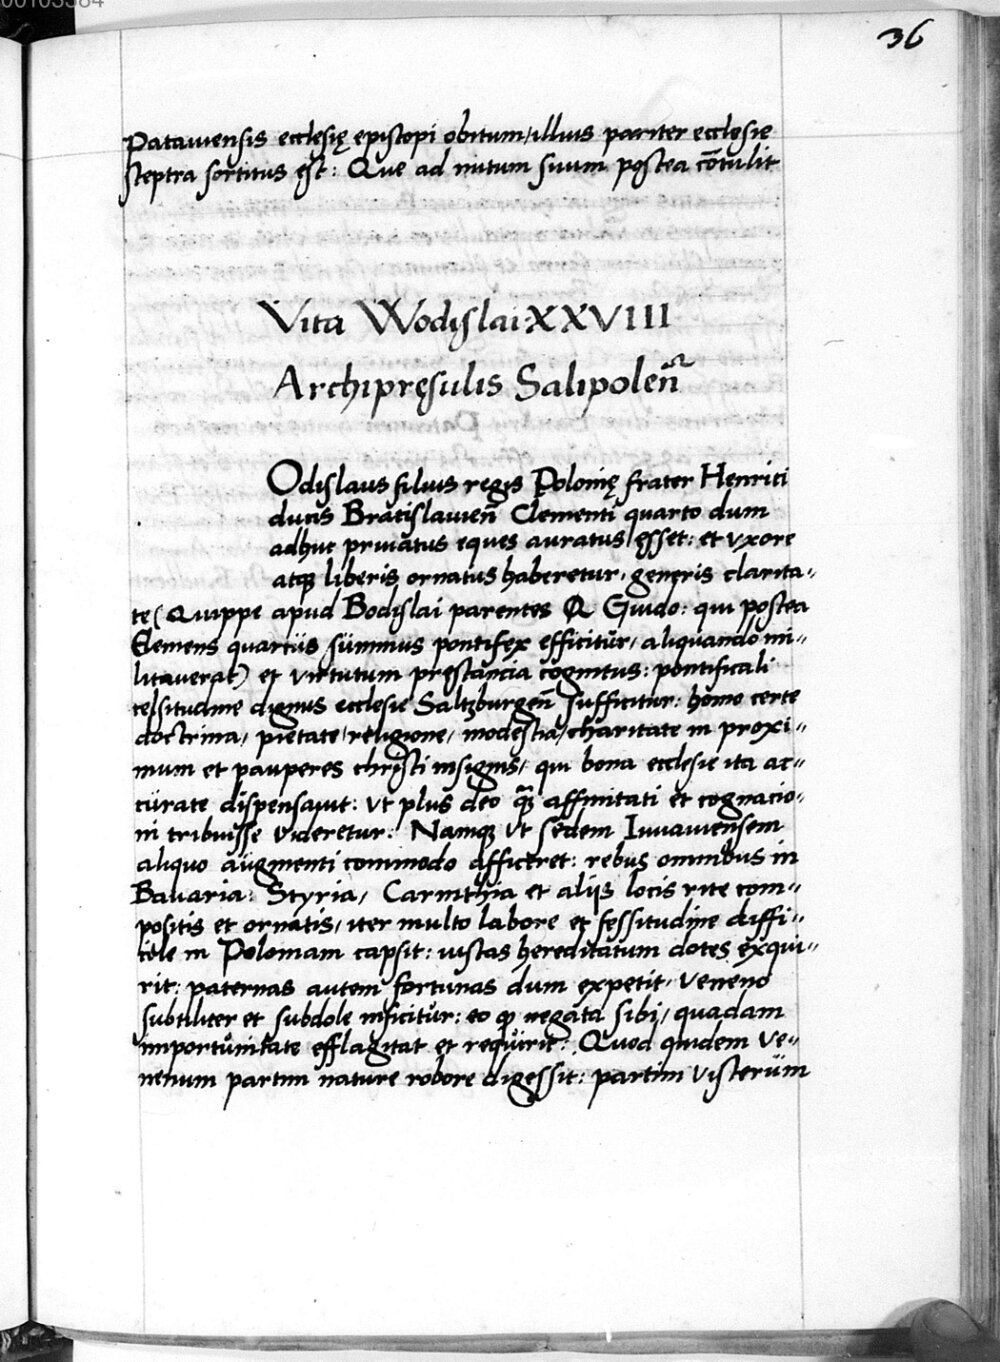 00103384
36
Patauiensis ecclesię episcopi obitum/illius pariter ecclesie
sceptra sortitus est: Que ad nutum suum postea cōtulit
Vita Wodislai XXVIII
Archipręsulis Salipoleñ
Odislaus filius regis Polonię frater Henrici
ducis Bratislauieñ Clementi quarto dum
adhuc priuatus eques auratus/esset: et vxore
atq; liberis ornatus haberetur, generis clarita„
te (Quippe apud Bodislai parentes Q Guido: qui postea
Clemens quartus summus pontifex efficitur, aliquando mi„
litauerat) et virtutum pręstancia cognitus: pontificali
celsitudine dignus ecclesie Saltzburgeñ sufficitur: homo certe
doctrina, pietate/religione, modestia/charitate in proxi„
mum et pauperes christi insignis, qui bona ecclesie ita ac„
curate dispensauit: vt plus deo q̃ affinitati et cognacio„
ni tribuisse videretur: Namq; vt sedem Iuuauiensem
aliquo augmenti commodo afficeret: rebus omnibus in
Bauaria: Styria, Carinthia et alijs locis rite com„
positis et ornatis, iter multo labore et fessitudine diffi„
cile in Poloniam capsit: iustas hereditatum dotes exqui„
rit: paternas autem fortunas dum expetit, veneno
subtiliter et subdole inficitur: eo q negata sibi, quadam
importunitate efflagitat et requirit: Quod quidem ve„
nenum partim nature robore digessit: partim viscerum